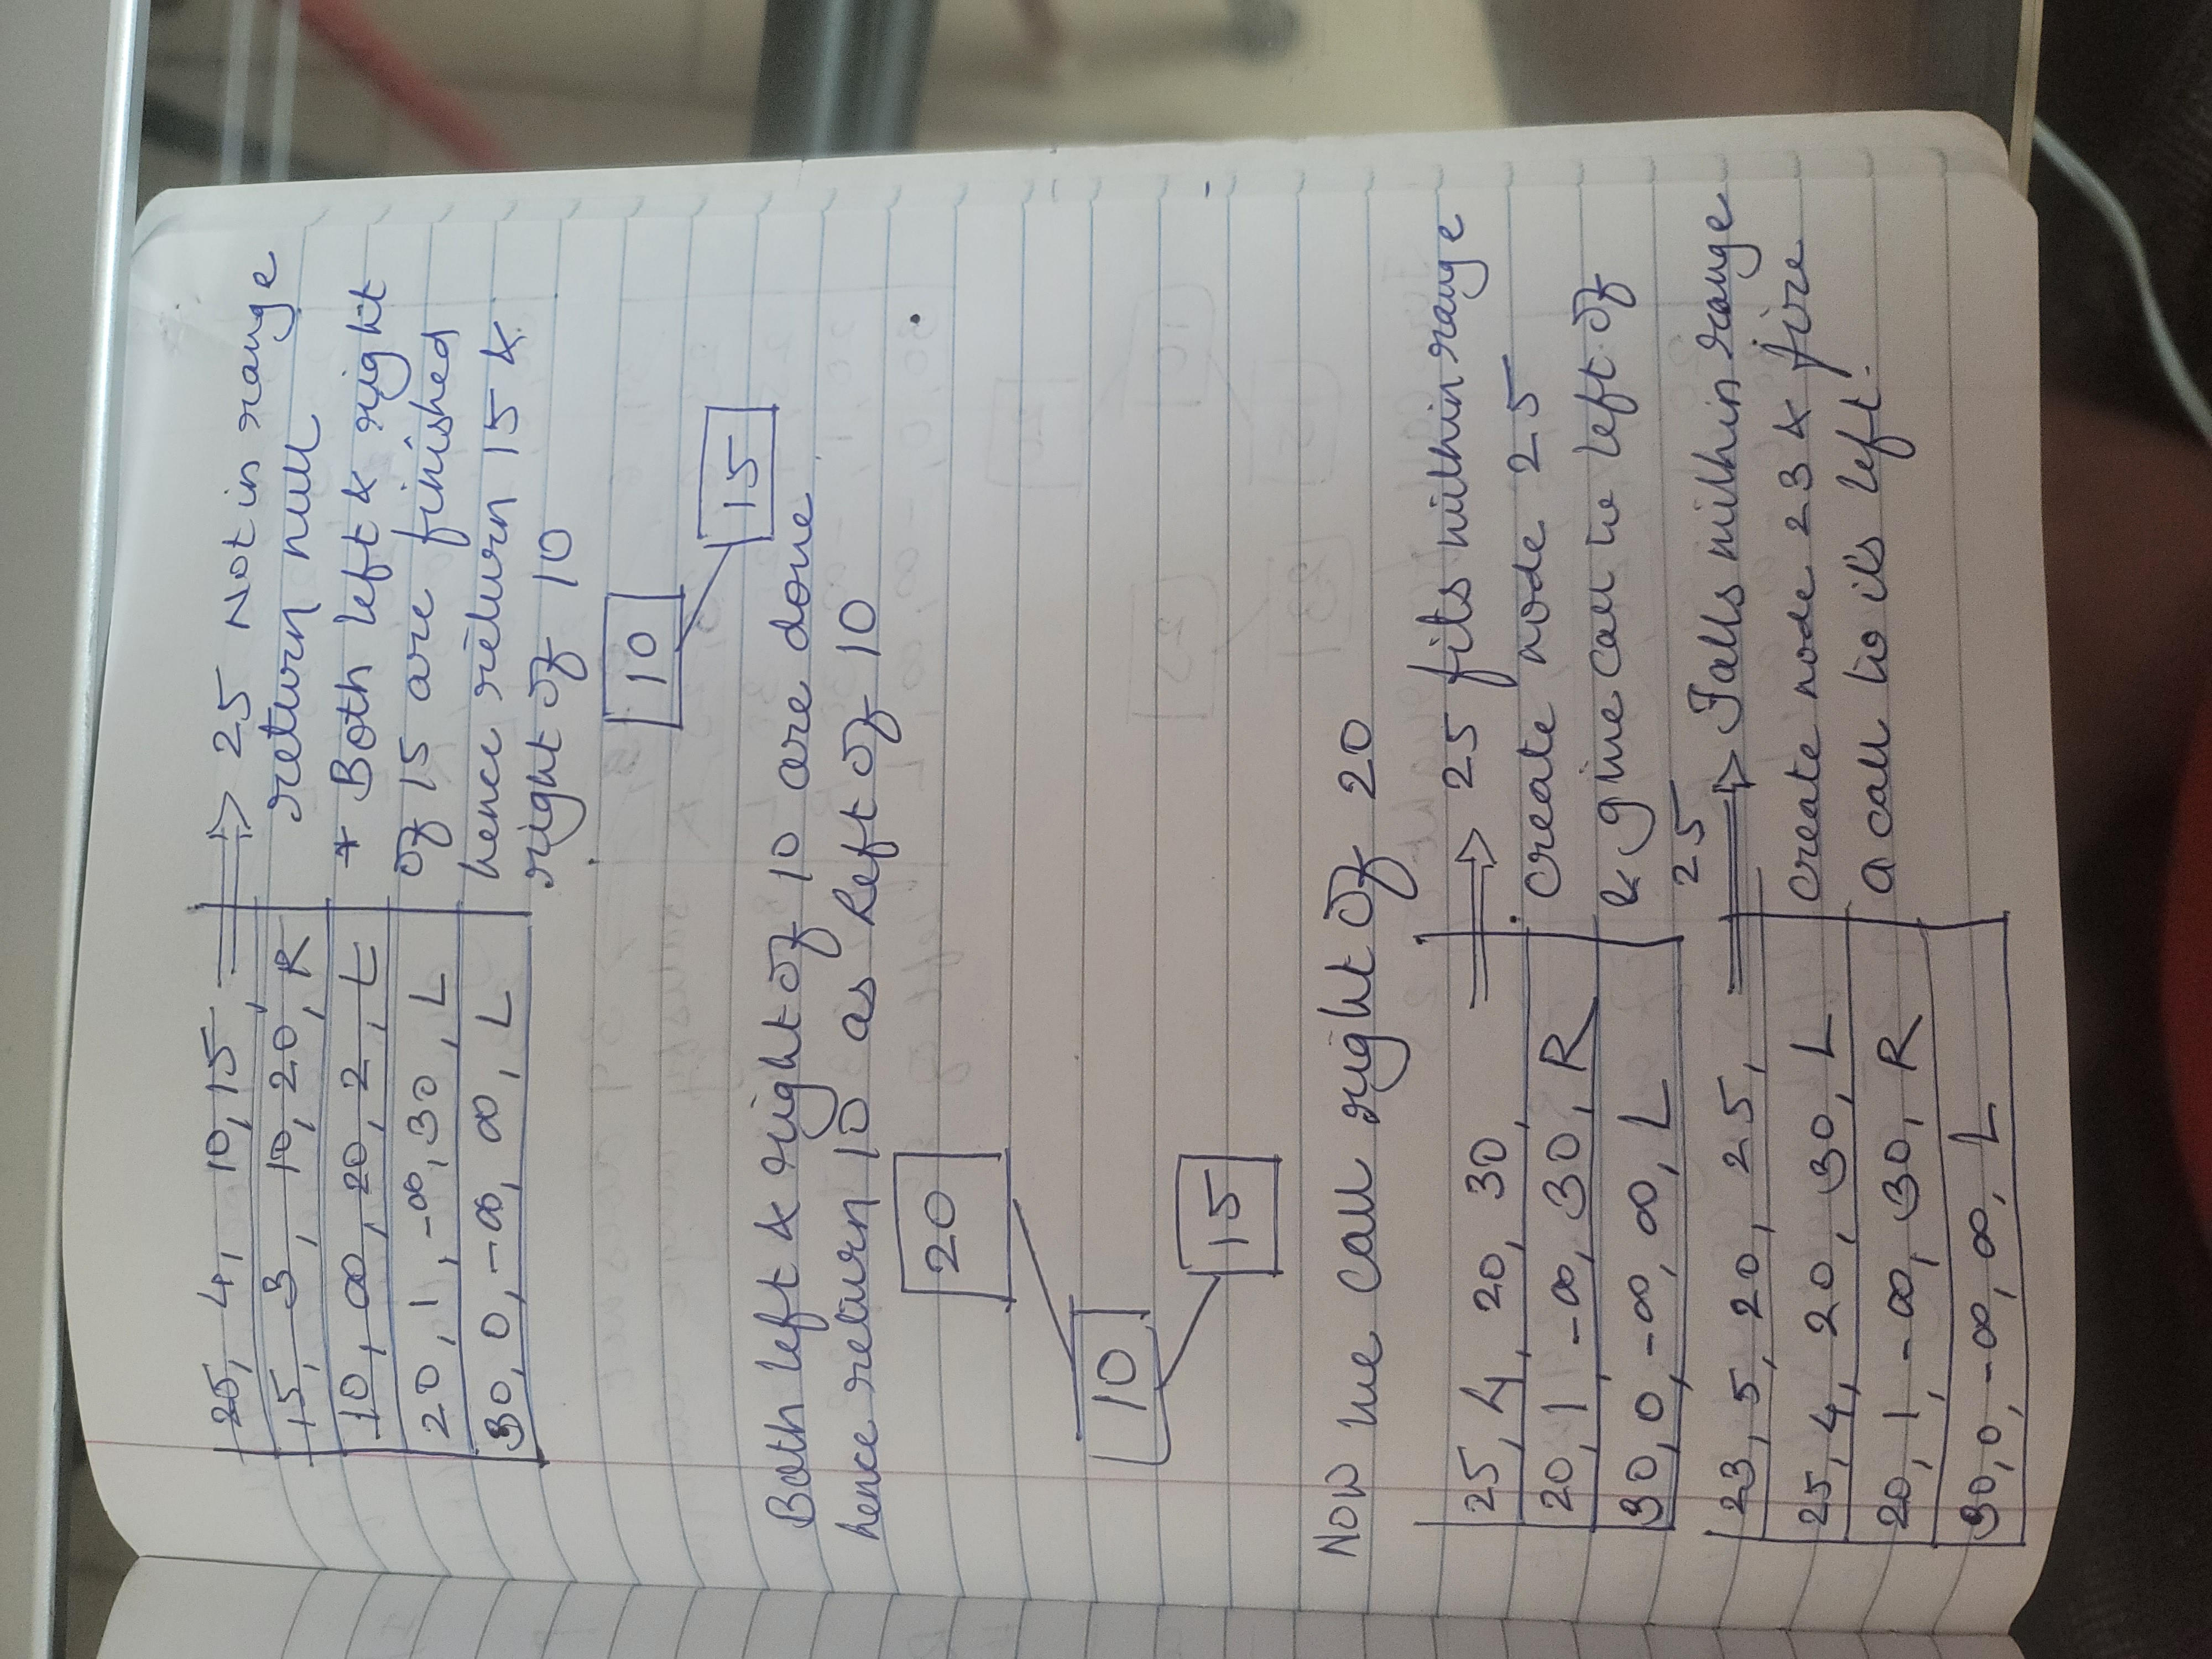 25, 4, 10, 15,
15, 3, 10, 20, R
10, ∞, 20, 2, L
20, 1, -∞, 30, L
30, 0, -∞, ∞, L
⇒ 25 Not in range
return null
* Both left & right
of 15 are finished
hence return 15 &
right of 10
10
15
Both left & right of 10 are done
hence return 10 as left of 10
20
10
15
Now we call right of 20
25, 4, 20, 30,
20, 1, -∞, 30, R
30, 0, -∞, ∞, L
⇒ 25 fits within range
create node 25
& give call to left of
25
23, 5, 20, 25,
25, 4, 20, 30, L
20, 1, -∞, 30, R
30, 0, -∞, ∞, L
⇒ Falls within range
create node 23 & fire
a call to it's left.